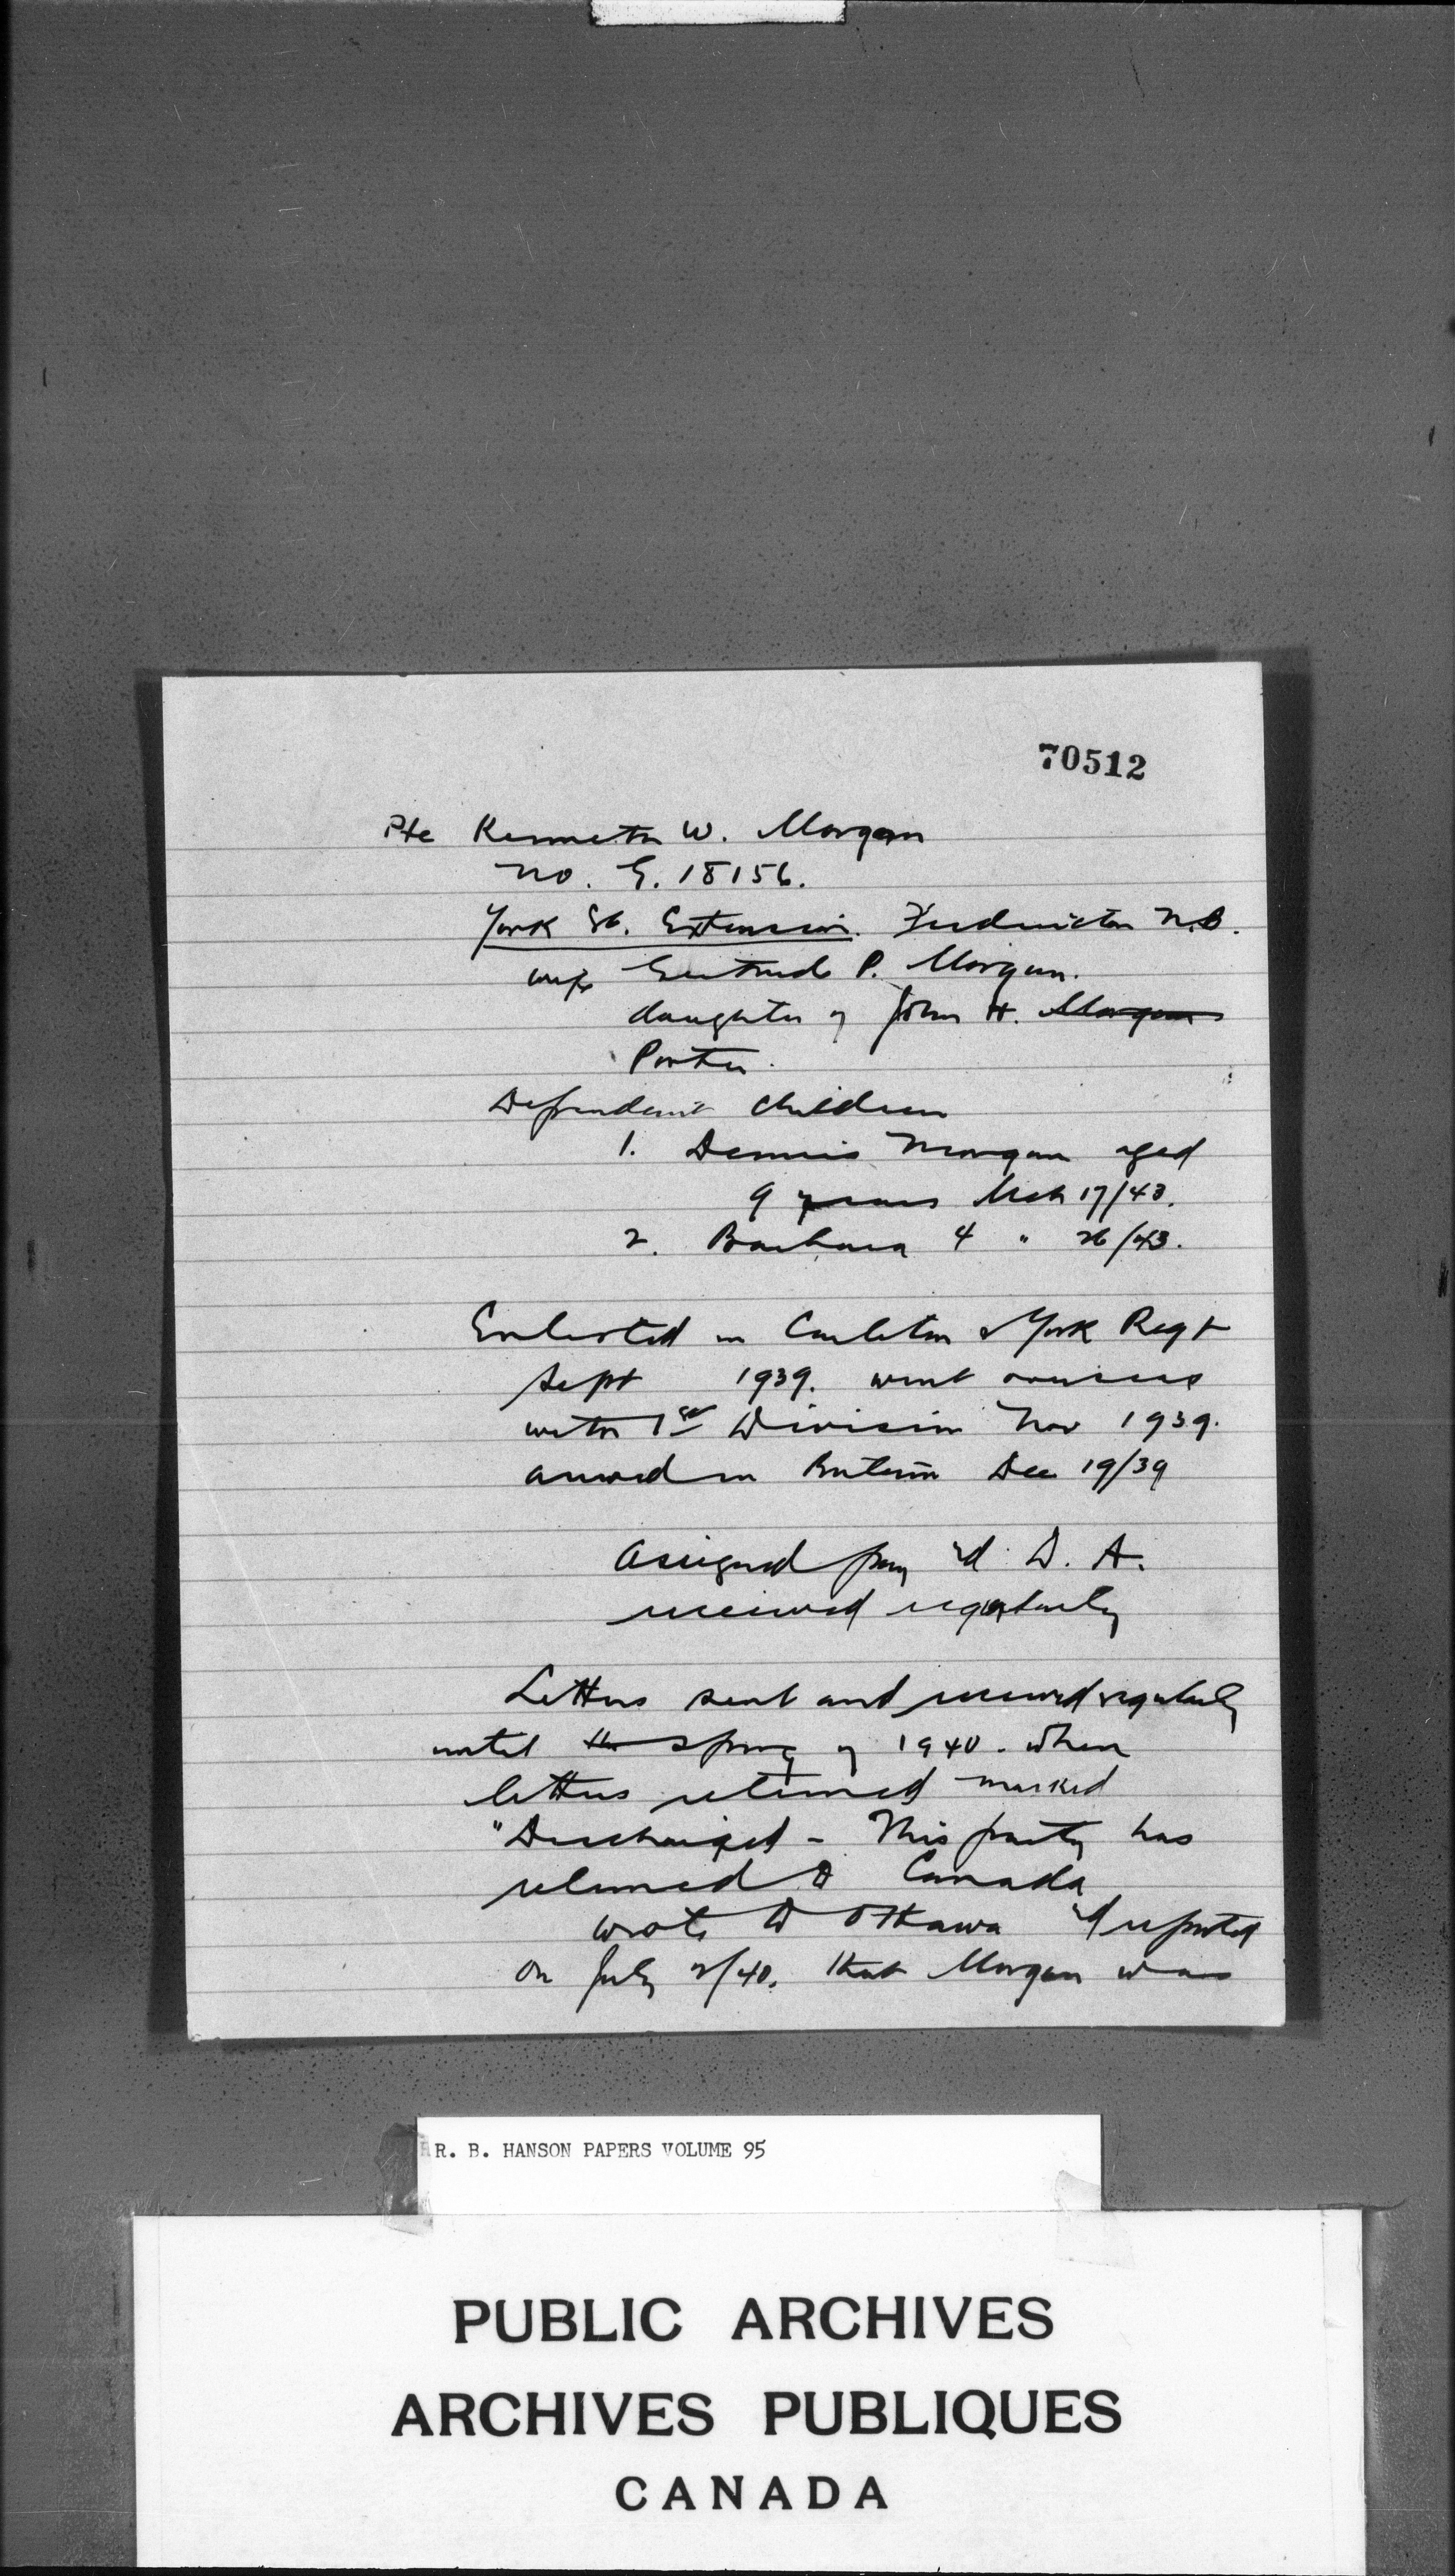 70512
Pte Kenneth W. Morgan
No. G. 18156.
York St. Extension. Fredericton N.B.
wife Gertrude P. Morgan.
daughter of John H. Morgan
Porter.
Dependent children
1. Dennis Morgan aged
9 years Mch 17/43.
2. Barbara 4 " 26/43.
Enlisted in Carleton & York Regt
Sept 1939. went overseas
with 1st Division Nov 1939.
arrived in Britain Dec 19/39
Assigned pay & D. A.
received regularly
Letters sent and received regularly
until the spring of 1940. when
letters returned marked
"Discharged - This party has
returned to Canada
wrote to Ottawa & reported
on July 2/40. that Morgan was
R. B. HANSON PAPERS VOLUME 95
PUBLIC ARCHIVES
ARCHIVES PUBLIQUES
CANADA